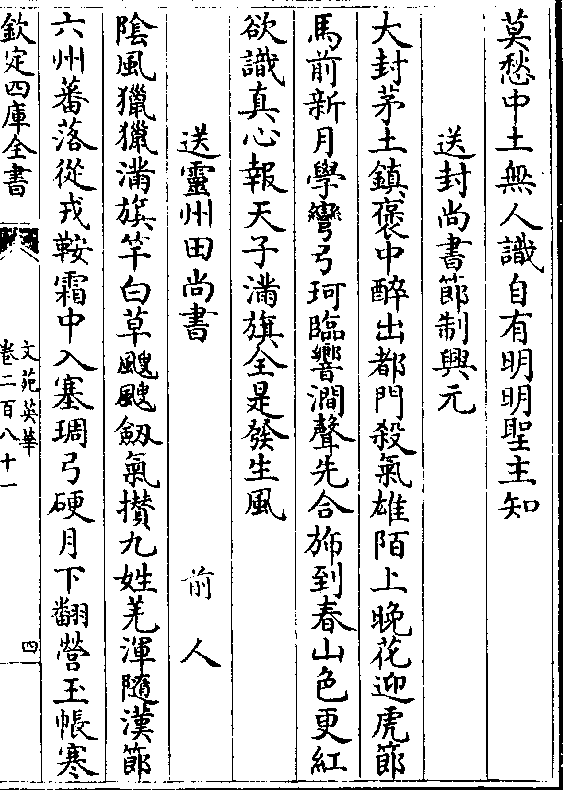 莫愁中土無人識自有明明聖主知
送封尚書節制興元
大封茅土鎮褒中醉出都門殺氣雄陌上晚花迎虎節
馬前新月學彎弓珂臨響澗聲先合斾到春山色更紅
欲識真心報天子滿旗全是發生風
送靈州田尚書　前人
陰風獵獵滿旗竿白草颼颼劔氣攅九姓羌渾隨漢節
六州蕃落從戎鞍霜中入塞琱弓硬月下翻營玉帳寒
欽定四庫全書
文苑英華
卷二百八十一
四